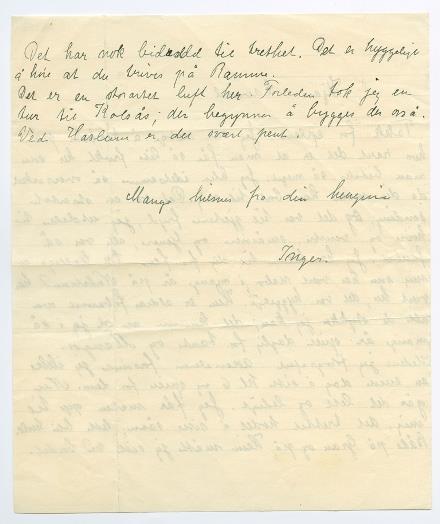 Det har nok bidradd til trethet. Det er hyggelig
å høre at du trives på Ramme.
Det er en storartet luft her. Forleden tok jeg en
tur til Kolsås; der begynner å bygges der også.
Ved Haslum er det svært pent.
Mange hilsner fra din hengivne
Inger.